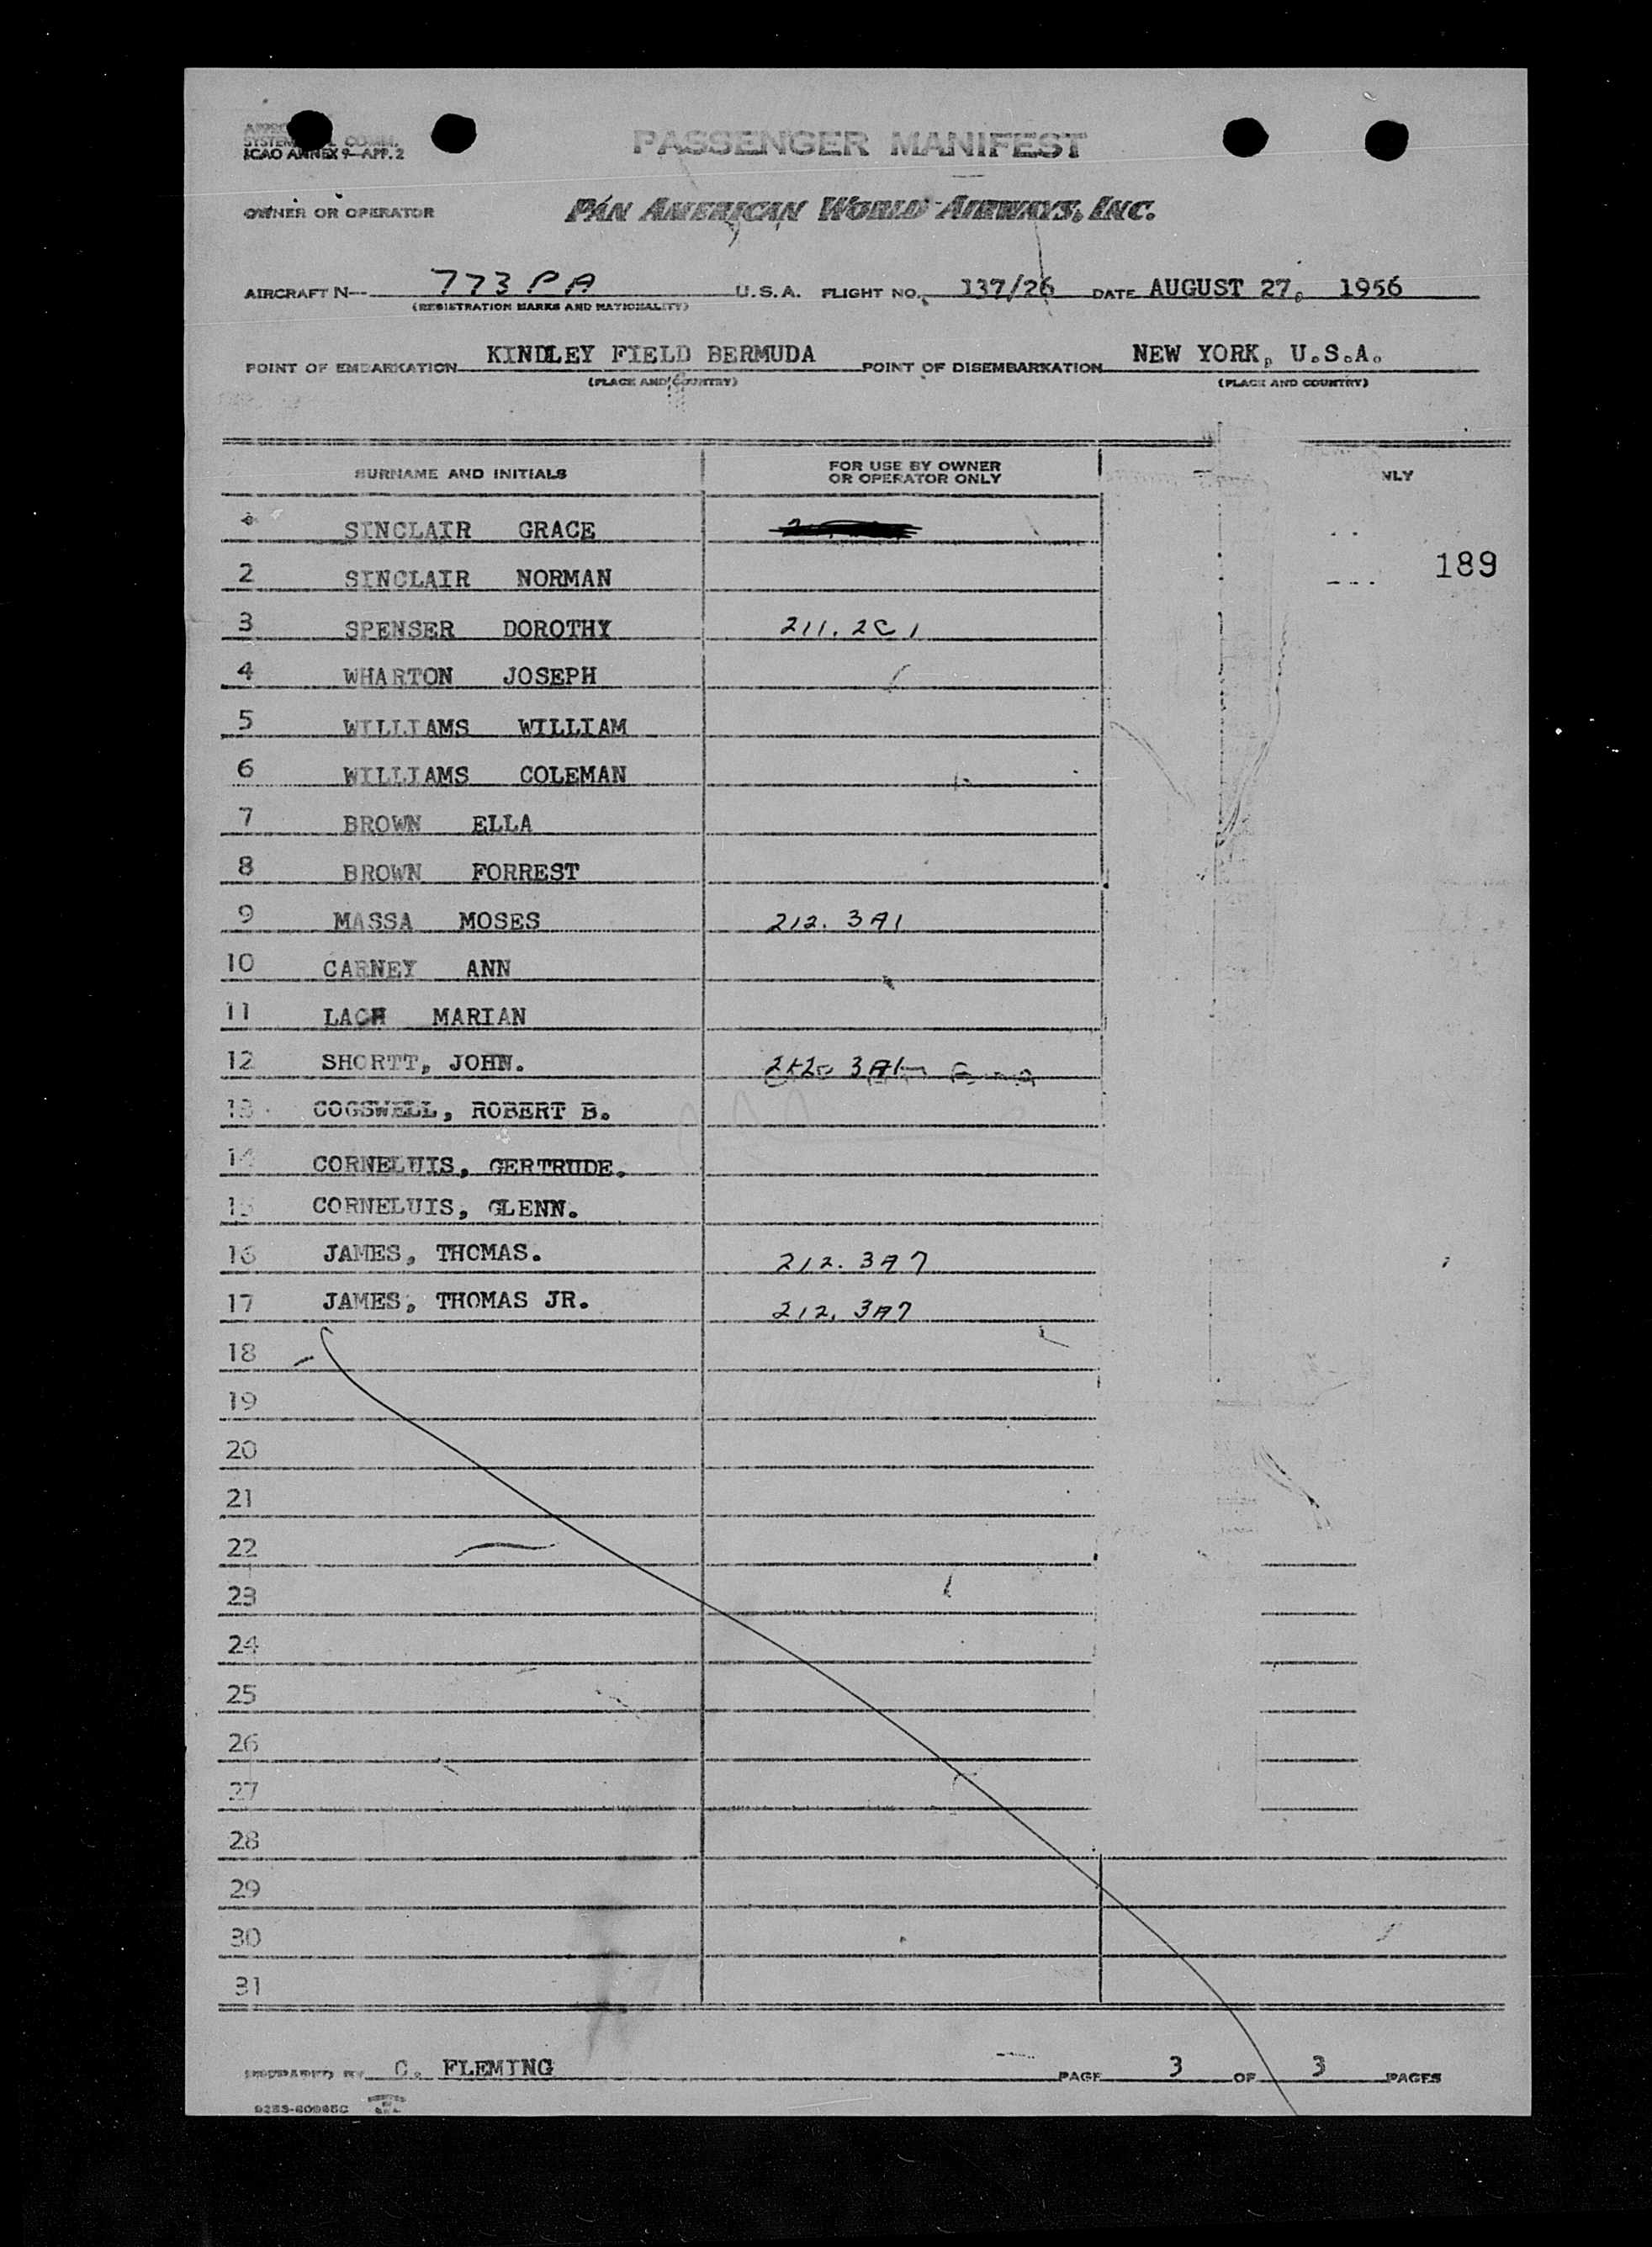 SYSTEM COMM.
ICAO ANNEX 9-APP. 2
PASSENGER MANIFEST
OWNER OR OPERATOR PAN AMERICAN WORLD AIRWAYS, INC.
AIRCRAFT N-- 773PA U.S.A. FLIGHT NO. 137/26 DATE AUGUST 27, 1956
(REGISTRATION MARKS AND NATIONALITY)
POINT OF EMBARKATION KINDLEY FIELD BERMUDA POINT OF DISEMBARKATION NEW YORK, U.S.A.
(PLACE AND COUNTRY) (PLACE AND COUNTRY)
SURNAME AND INITIALS FOR USE BY OWNER OR OPERATOR ONLY NLY
SINCLAIR GRACE
189
2 SINCLAIR NORMAN
3 SPENSER DOROTHY 211.2C1
4 WHARTON JOSEPH
5 WILLIAMS WILLIAM
6 WILLIAMS COLEMAN
7 BROWN ELLA
8 BROWN FORREST
9 MASSA MOSES 212.3A1
10 CARNEY ANN
11 LACH MARIAN
12 SHORTT, JOHN.
13 COGSWELL, ROBERT B.
14 CORNELUIS, GERTRUDE.
15 CORNELUIS, GLENN.
16 JAMES, THOMAS. 212.3A7
17 JAMES, THOMAS JR. 212.3A7
18
19
20
21
22
23
24
25
26
27
28
29
30
31
PREPARED BY C. FLEMING PAGE 3 OF 3 PAGES